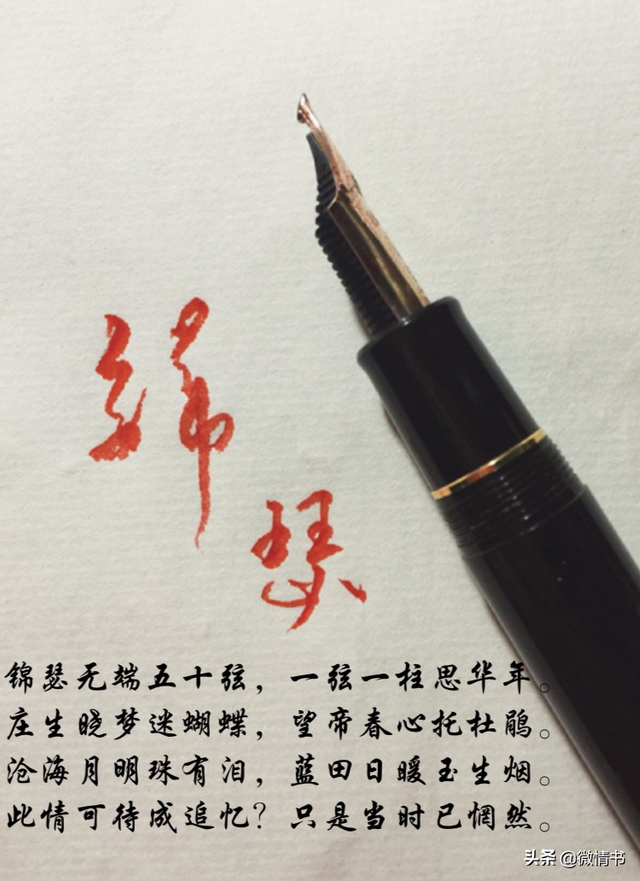 锦
瑟
锦瑟无端五十弦，一弦一柱思华年。
庄生晓梦迷蝴蝶，望帝春心托杜鹃。
沧海月明珠有泪，蓝田日暖玉生烟。
此情可待成追忆？只是当时已惘然。
头条 @微情书